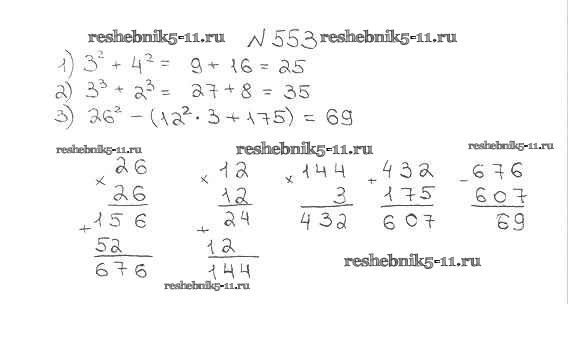 reshebnik5-11.ru № 553 reshebnik5-11.ru
1) 3² + 4² = 9 + 16 = 25
2) 3³ + 2³ = 27 + 8 = 35
3) 26² - (12² · 3 + 175) = 69
reshebnik5-11.ru reshebnik5-11.ru reshebnik5-11.ru
× 26 × 12 × 144 + 432 - 676
26 12 3 175 607
+ 156 + 24 432 607 69
52 12
676 144
reshebnik5-11.ru
reshebnik5-11.ru